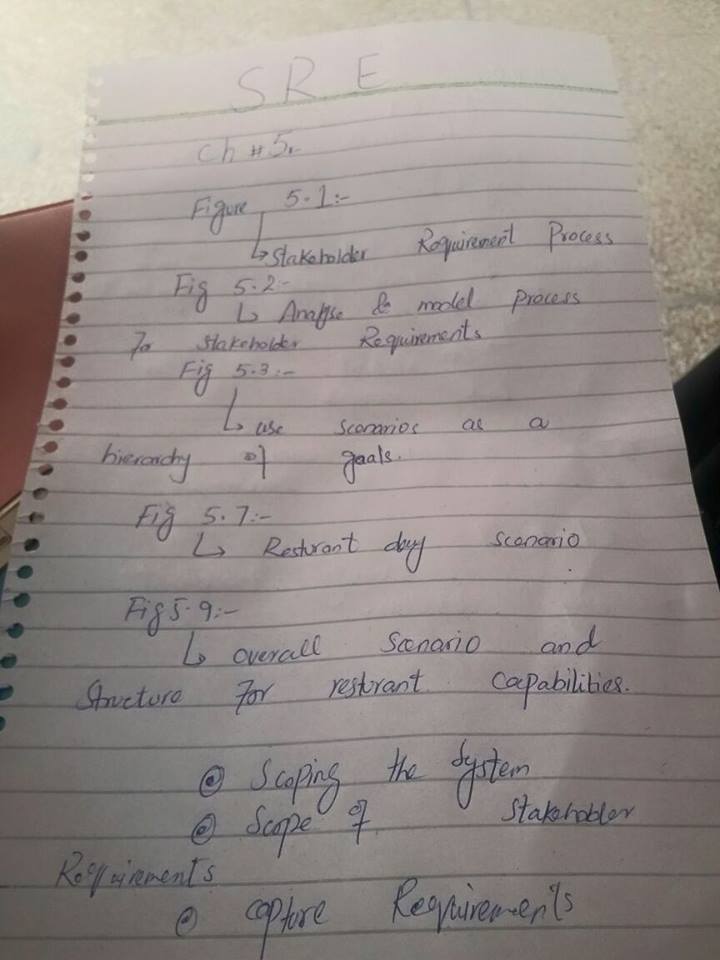 S R E
Ch # 5.
Figure 5.1:-
↳ Stakeholder Requirement Process
Fig 5.2-
↳ Analyse & model process
For stakeholder Requirements
Fig 5.3:-
↳ use scenarios as a
hierarchy of goals.
Fig 5.7:-
↳ Resturant day scenario
Fig 5.9:-
↳ overall scenario and
Structure For resturant capabilities.
Scoping the System
Scope of Stakeholder
Requirements
Capture Requirements